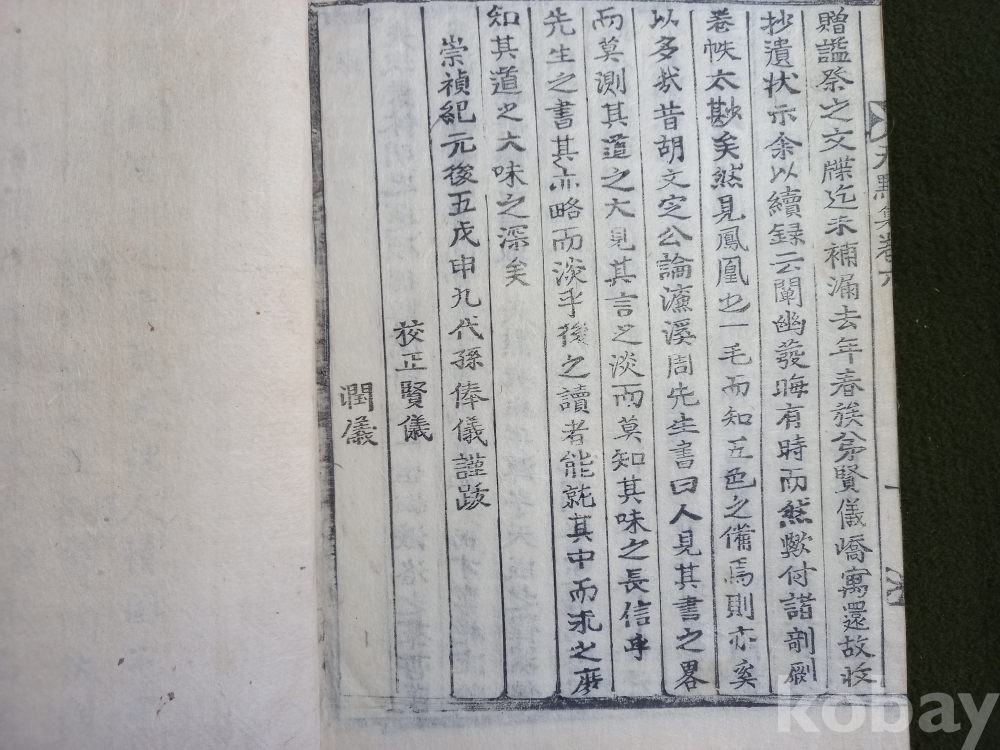 贈諡祭之文牒迄未補漏去年春族弟賢儀嶠寓還故收
抄遺狀示余以續録云闡幽發晦有時而然歟付諸剞劂
卷帙太尠矣然見鳳凰也一毛而知五色之備焉則亦奚
以多爲昔胡文定公論濂溪周先生書曰人見其書之畧
而莫測其道之大見其言之淡而莫知其味之長信乎
先生之書其亦略而淡乎後之讀者能就其中而求之庶
知其道之大味之深矣
崇禎紀元後五戊申九代孫俸儀謹跋
校正賢儀
潤儀
集卷六
kobay